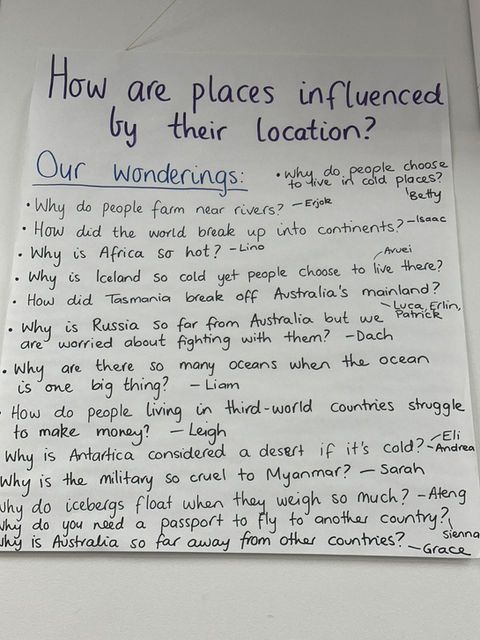 How are places influenced
by their location?
Our wonderings:
• Why do people choose
to live in cold places?
Betty
• Why do people farm near rivers? - Erjok
• How did the world break up into continents? - Isaac
• Why is Africa so hot? - Lino
Aruei
• Why is Iceland so cold yet people choose to live there?
• How did Tasmania break off Australia's mainland?
- Luca, Erlin,
Patrick
• Why is Russia so far from Australia but we
are worried about fighting with them? - Dach
• Why are there so many oceans when the ocean
is one big thing? - Liam
• How do people living in third-world countries struggle
to make money? - Leigh
Why is Antartica considered a desert if it's cold? - Eli
- Andrea
Why is the military so cruel to Myanmar? - Sarah
Why do icebergs float when they weigh so much? - Ateng
Why do you need a passport to fly to another country?
Sienna
Why is Australia so far away from other countries?
- Grace